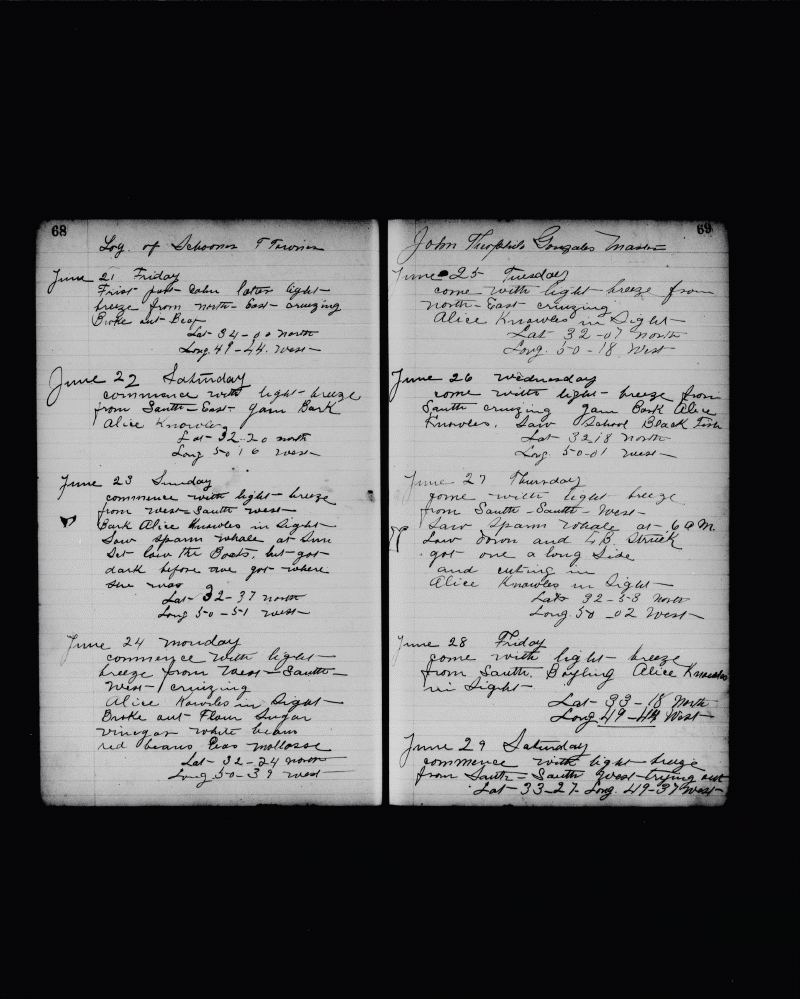 68
Log. of Schooner T Towner
June 21 Friday
Frist part Calm later light
breeze from north-East cruzing
Broke out Beef
Lat 34-00 north
Long 49-44. West
June 22 Saturday
commence with light breeze
from South-East gam Bark
Alice Knowles
Lat 32-20 north
Long 50 16 west
June 23 Sunday
commence with light breeze
from West-South west
Bark Alice Knowles in Sight
Saw sparm whale at Sun
Set low the Boats, but got
dark before we got where
she was
Lat 32-37 north
Long 50-51 west
June 24 monday
commence with light
breeze from West-South-
West cruzing
Alice Kowles in Sight
Broke out Flour Sugar
vinegar white beans
red beans Peas mollasse
Lat 32-24 north
Long 50-39 west
69
John Theophilo Gonzales Master
June 25 Tuesday
come with light breeze from
north-East cruzing
Alice Knowles in Sight
Lat 32-07 north
Long 50-18 West
June 26 Wednesday
come with light breeze from
South cruzing gam Bark Alice
Knowles. Saw School Black Fish
Lat 32 18 north
Long 50-01 west
June 27 Thursday
come with light breeze
from South-South-West
Saw Sparm Whale at 6 AM
Low down and L,B, Struck
got one a long Side
and cuting in
Alice Knowles in Sight
Lat 32-58 North
Long. 50-02 West
June 28 Friday
come with light breeze
from South. Boyling Alice Knowles
in Sight
Lat 33-18 North
Long 49-44 West
June 29 Saturday
commence with light breeze
from South-South West trying out
Lat 33-27- Long. 49-37 West